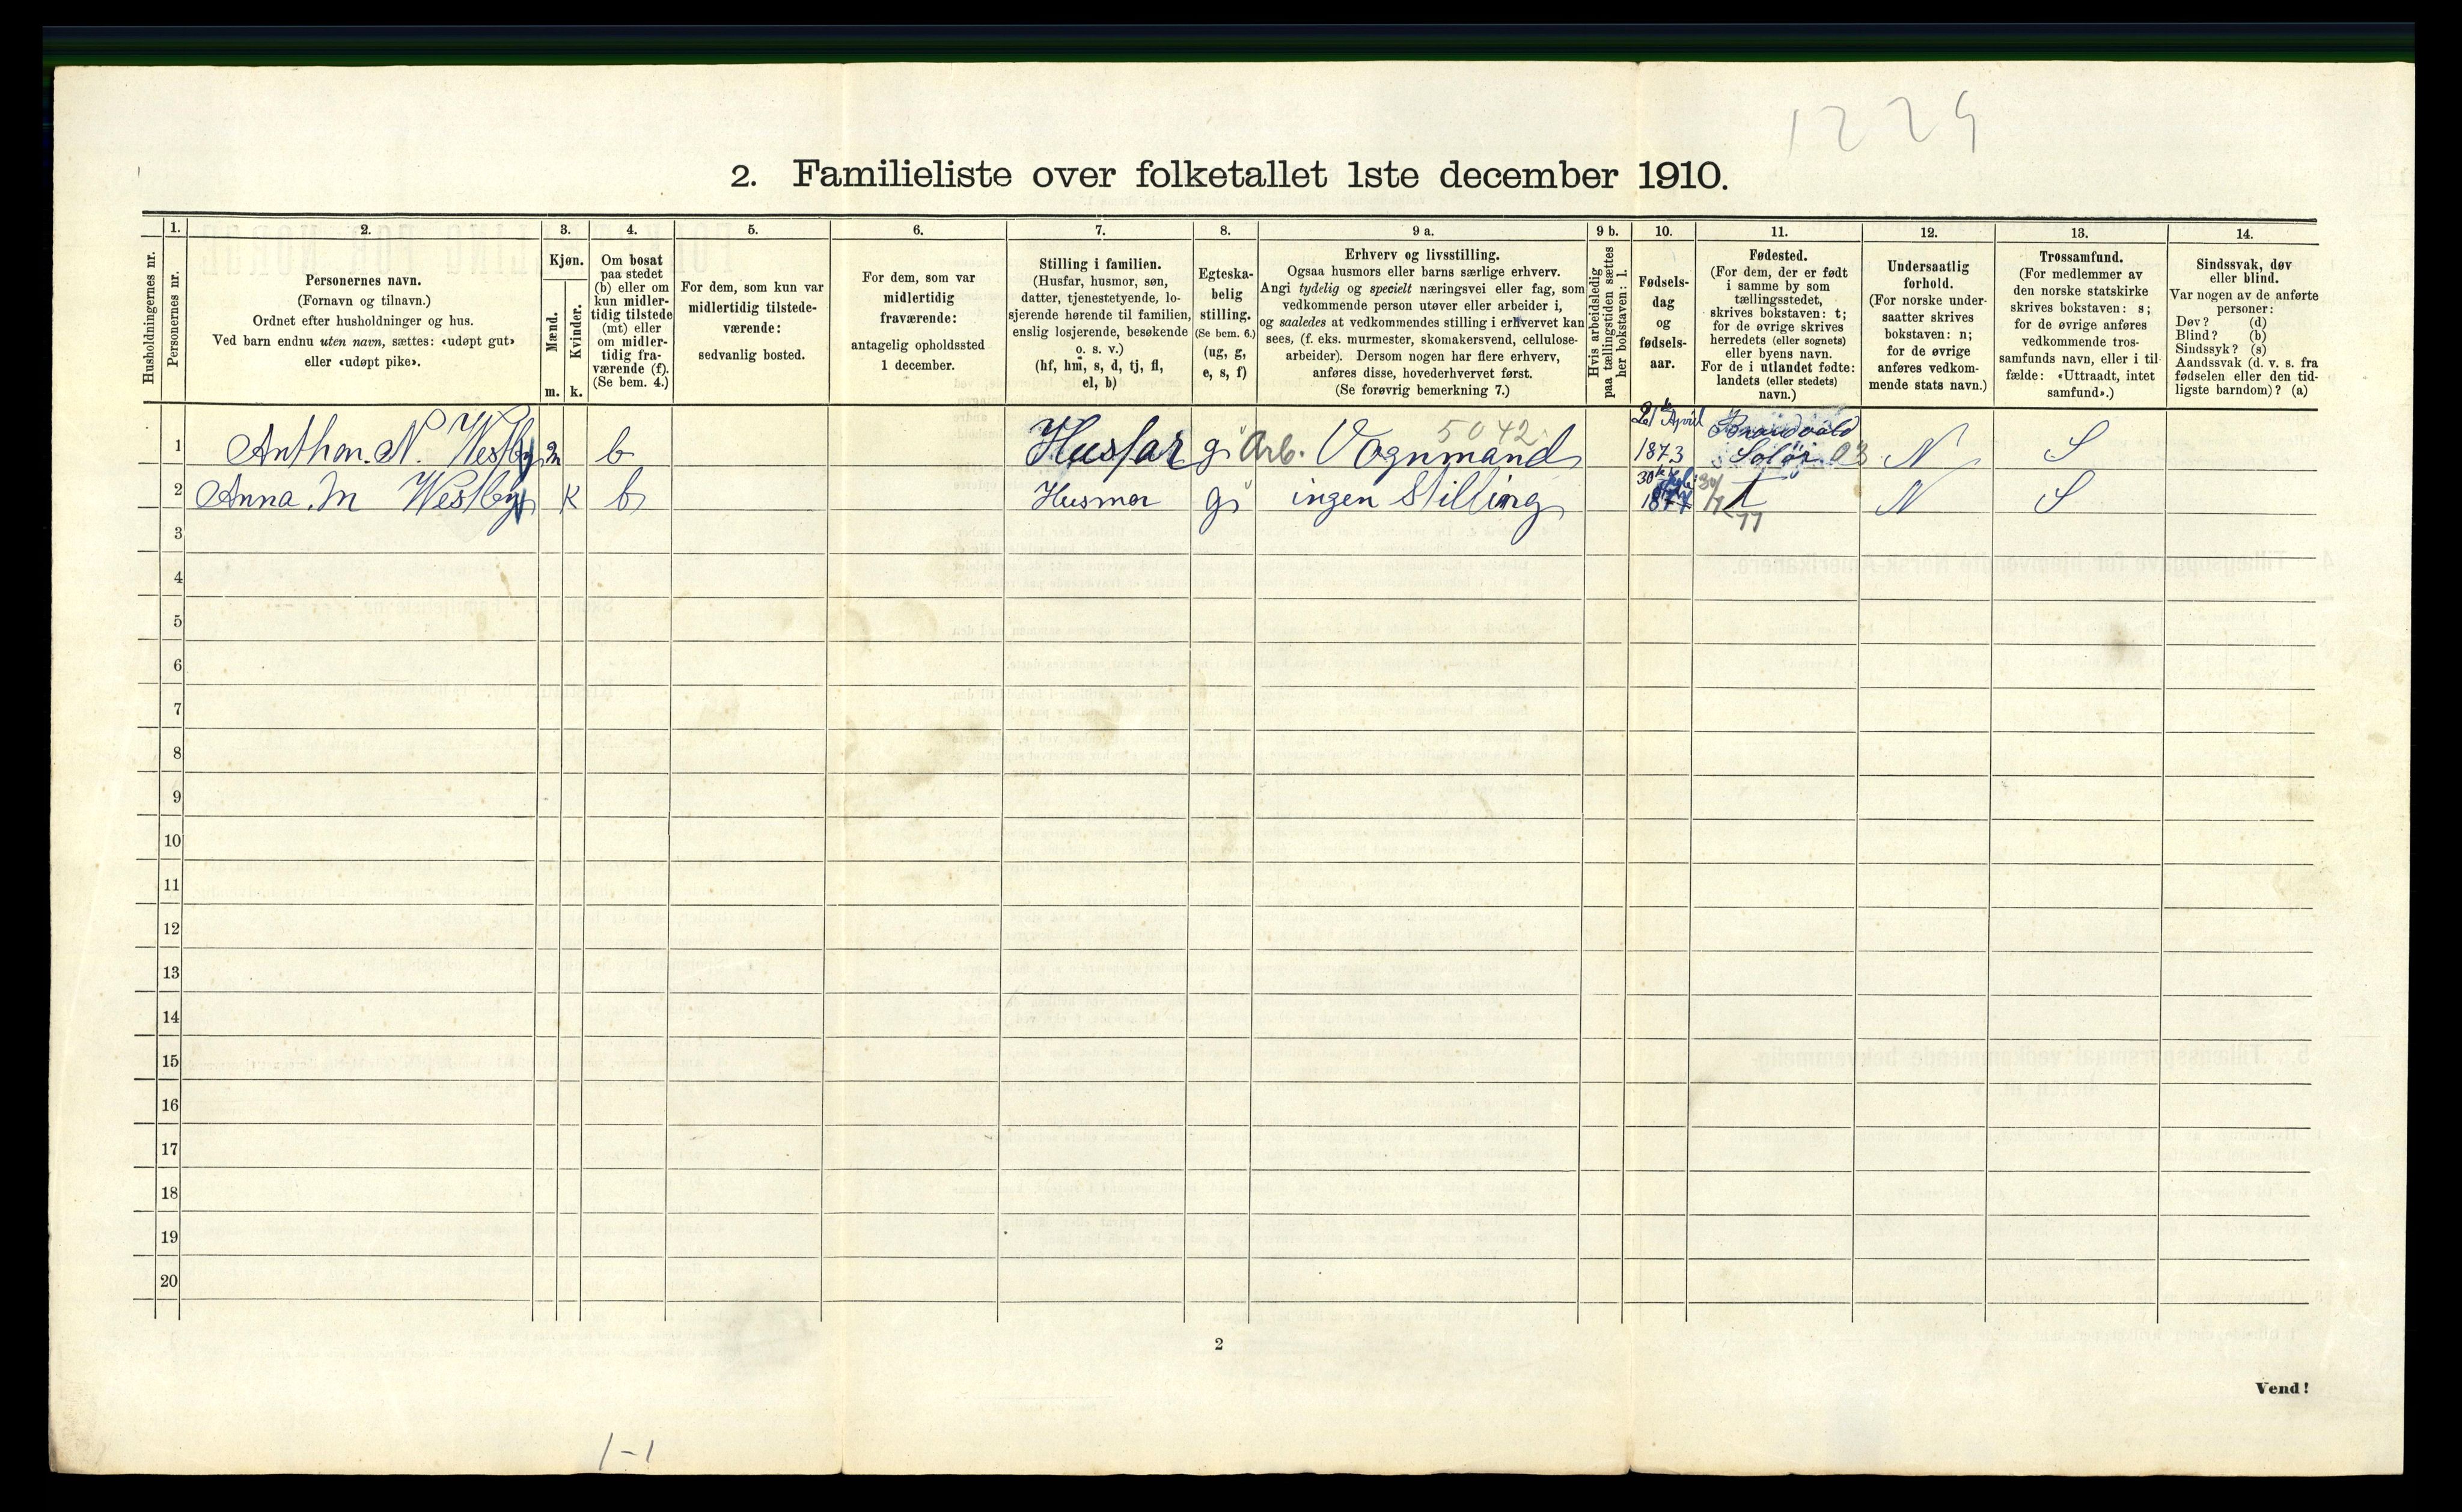 1229
2. Familieliste over folketallet 1ste december 1910.
Husholdningernes nr.
1. Personernes nr.
2.
Personernes navn.
(Fornavn og tilnavn.)
Ordnet efter husholdninger og hus.
Ved barn endnu uten navn, sættes: «udøpt gut»
eller «udøpt pike».
3.
Kjøn.
Mænd. m.
Kvinder. k.
4.
Om bosat
paa stedet
(b) eller om
kun midler-
tidig tilstede
(mt) eller
om midler-
tidig fra-
værende (f).
(Se bem. 4.)
5.
For dem, som kun var
midlertidig tilstede-
værende:
sedvanlig bosted.
6.
For dem, som var
midlertidig
fraværende:
antagelig opholdssted
1 december.
7.
Stilling i familien.
(Husfar, husmor, søn,
datter, tjenestetyende, lo-
sjerende hørende til familien,
enslig losjerende, besøkende
o. s. v.)
(hf, hm, s, d, tj, fl,
el, b)
8.
Egteska-
belig
stilling.
(Se bem. 6.)
(ug, g,
e, s, f)
9 a.
Erhverv og livsstilling.
Ogsaa husmors eller barns særlige erhverv.
Angi tydelig og specielt næringsvei eller fag, som
vedkommende person utøver eller arbeider i,
og saaledes at vedkommendes stilling i erhvervet kan
sees, (f. eks. murmester, skomakersvend, cellulose-
arbeider). Dersom nogen har flere erhverv,
anføres disse, hovederhvervet først.
(Se forøvrig bemerkning 7.)
9 b.
Hvis arbeidsledig
paa tællingstiden sættes
her bokstaven: l.
10.
Fødsels-
dag
og
fødsels-
aar.
11.
Fødested.
(For dem, der er født
i samme by som
tællingsstedet,
skrives bokstaven: t;
for de øvrige skrives
herredets (eller sognets)
eller byens navn.
For de i utlandet fødte:
landets (eller stedets)
navn.)
12.
Undersaatlig
forhold.
(For norske under-
saatter skrives
bokstaven: n;
for de øvrige
anføres vedkom-
mende stats navn.)
13.
Trossamfund.
(For medlemmer av
den norske statskirke
skrives bokstaven: s;
for de øvrige anføres
vedkommende tros-
samfunds navn, eller i til-
fælde: «Uttraadt, intet
samfund».)
14.
Sindssvak, døv
eller blind.
Var nogen av de anførte
personer:
Døv? (d)
Blind? (b)
Sindssyk? (s)
Aandssvak (d. v. s. fra
fødselen eller den tid-
ligste barndom)? (a)
1 Anthon. N. Westby m b Husfar g Arb. Vognmand 5042 April 1873 Brandvold Solør 03 N S
2 Anna. M Westby k b Husmor g ingen Stilling 30 1877 30/ 77 t N S
3
4
5
6
7
8
9
10
11
12
13
14
15
16
17
18
19
20
2
Vend!
1-1